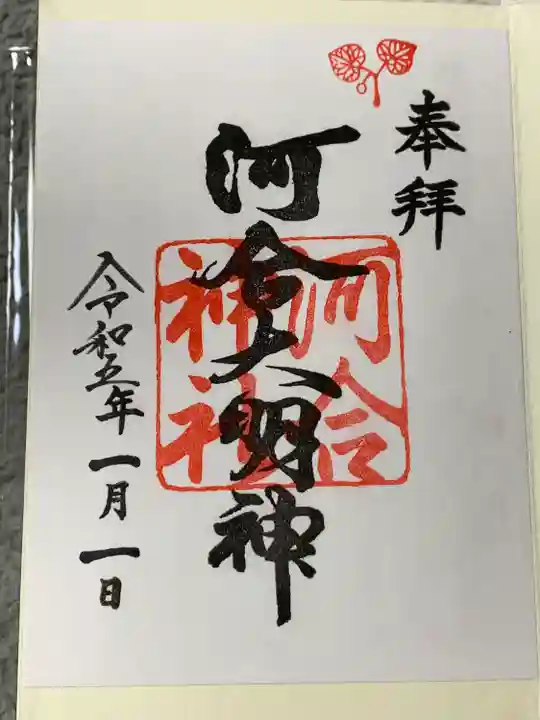 奉拝
河合大明神
河合
神社
令和五年一月一日